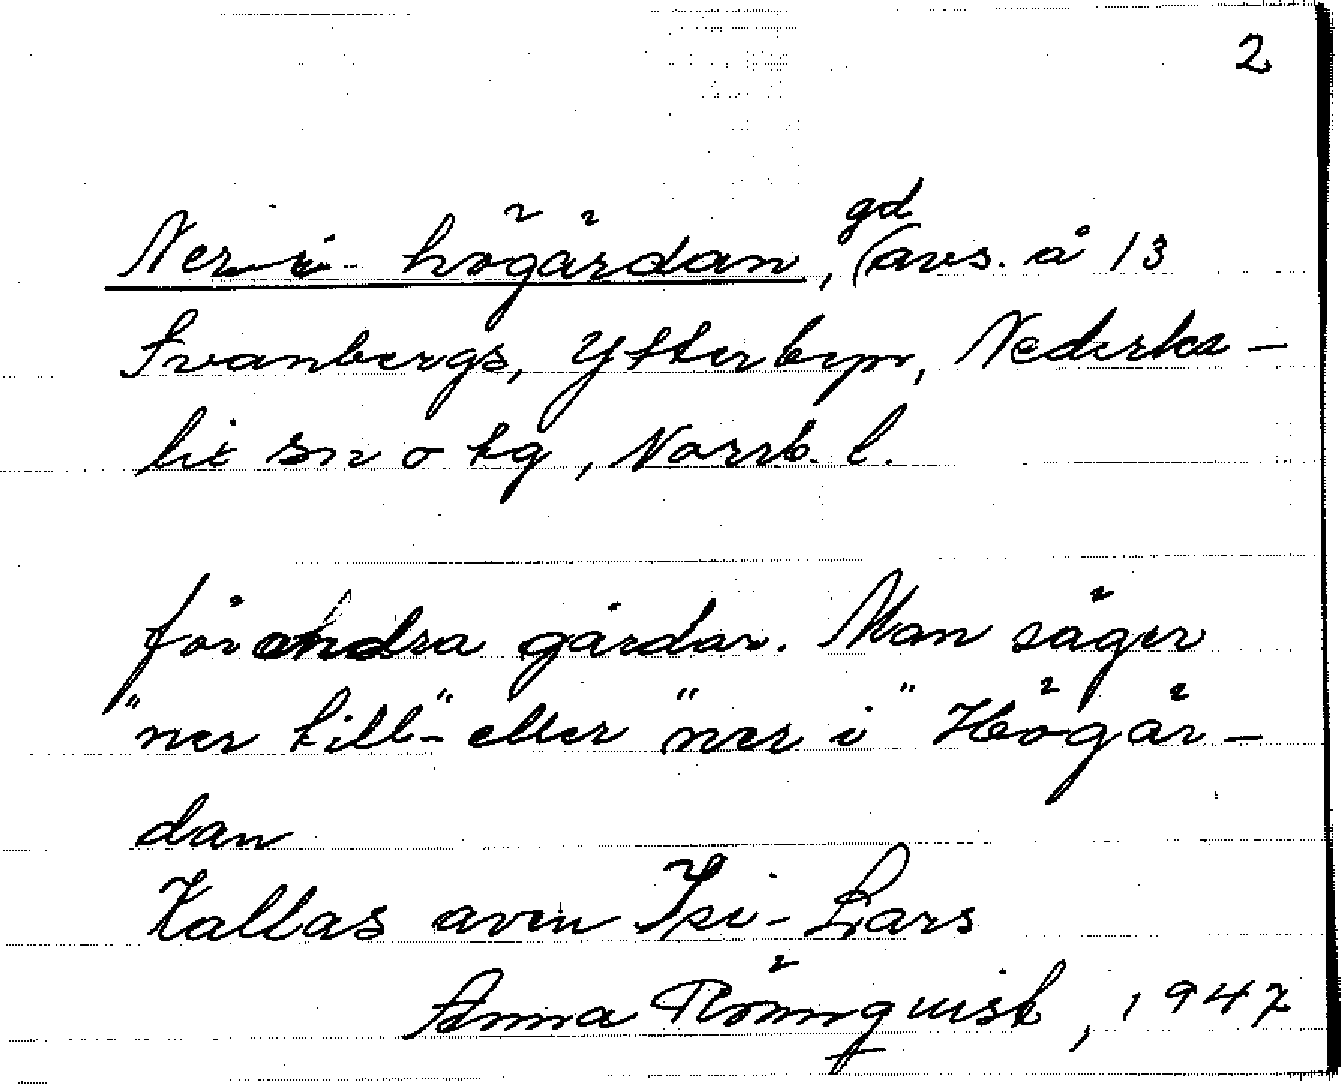 2
Ner i högårdan, gd (avs. å 13
Svanbergs, Ytterbyn, Nederka-
lix sn o tg, Norrb. l.
för andra gårdar. Man säger
"ner till" eller "ner i" Högår-
dan
Kallas även Isi-Lars
Anna Rönnquist, 1947